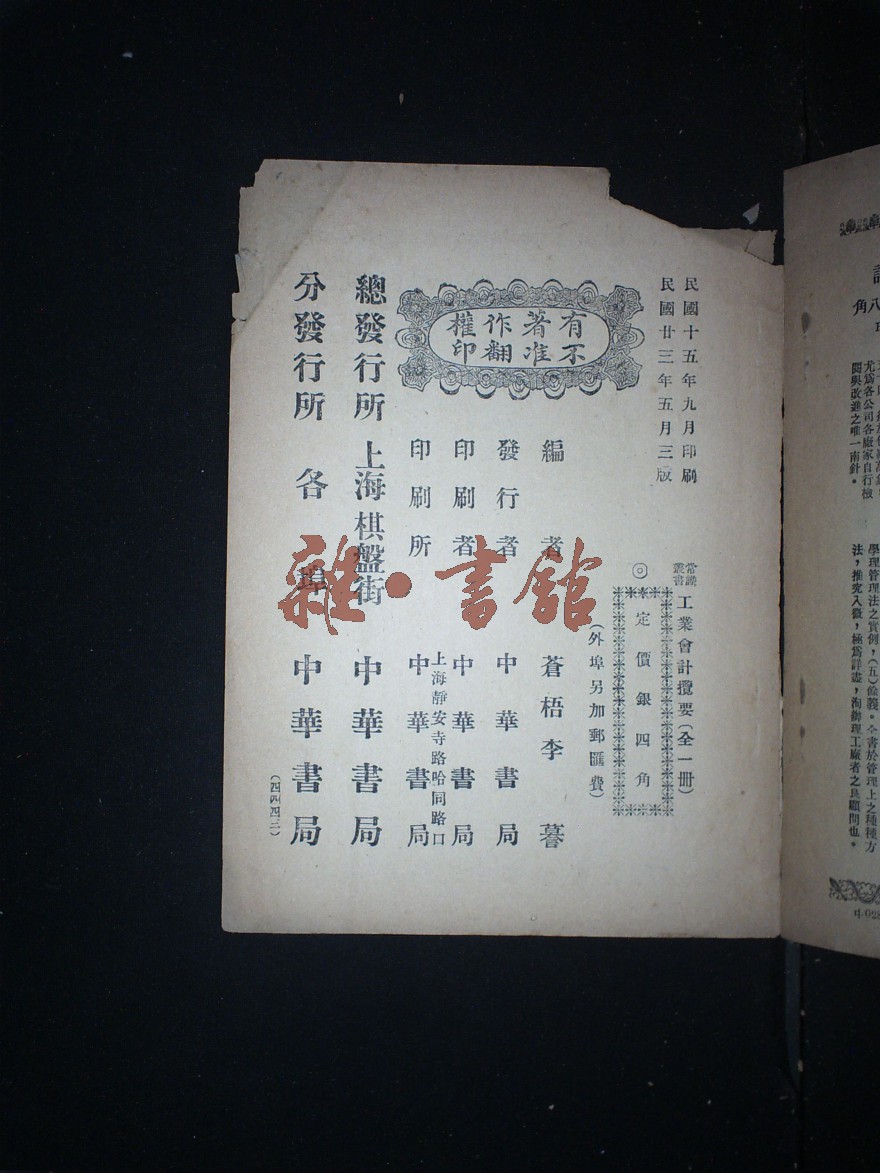 民國十五年九月印刷
民國廿三年五月三版
常識叢書 工業會計攬要（全一冊）
◎定價銀四角
（外埠另加郵匯費）
有著作權
不准翻印
編者 蒼梧李
發行者 中華書局
印刷者 中華書局
上海靜安寺路哈同路口
印刷所 中華書局
總發行所 上海棋盤街 中華書局
分發行所 各埠 中華書局
雜·書館
八角
尤爲各公司各廠家自行檢
閱與改進之唯一南針。
學理管理法之實例，（五）餘義。全書於管理上之種種方
法，推究入微，極爲詳盡，洵辦理工廠者之良顧問也。